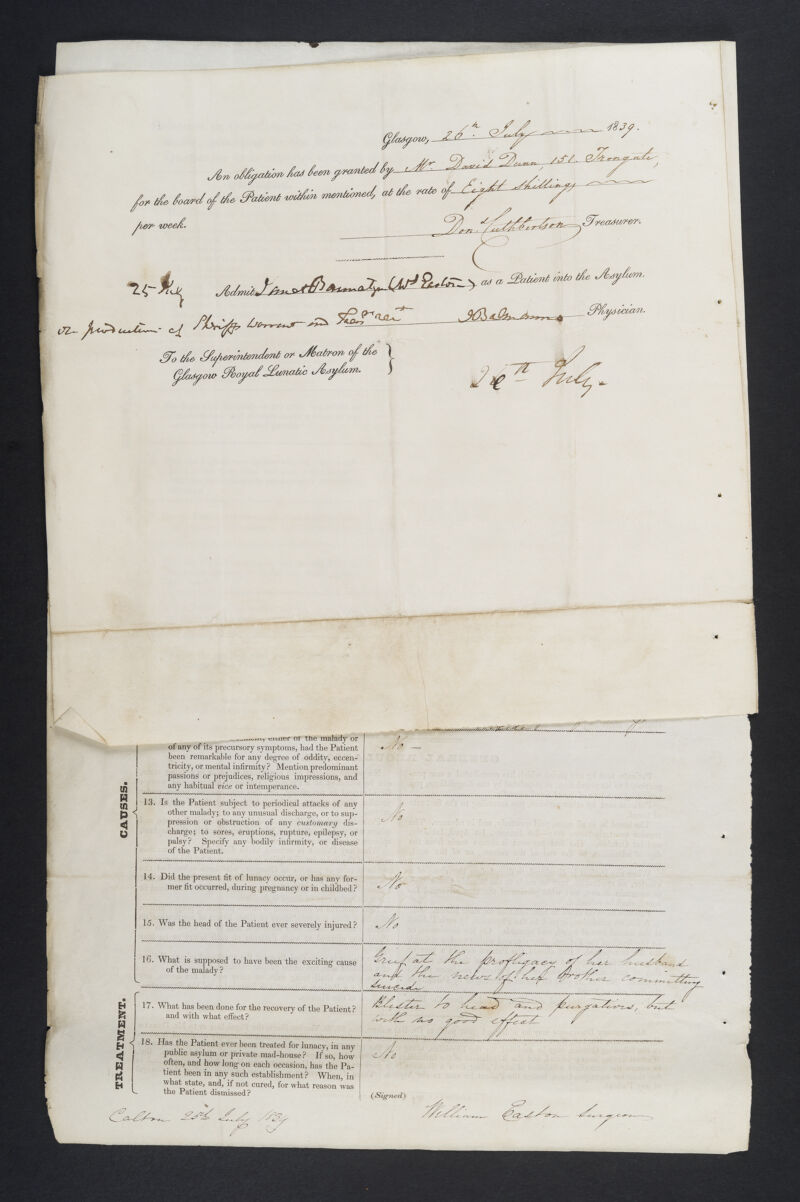 Glasgow, 26th July 1839.
An obligation has been granted by Mr. David Dunn 151. Trongate,
for the board of the Patient within mentioned, at the rate of Eight Shillings
per week.
Don. Cuthbertson Treasurer.
25 July Admit Janet Bannatyne (Wd Easton) as a Patient into the Asylum.
on production of Sheriffs warrant and Physician.
To the Superintendent or Matron of the
Glasgow Royal Lunatic Asylum.
26th July.
either of the malady or
of any of its precursory symptoms, had the Patient
been remarkable for any degree of oddity, eccen-
tricity, or mental infirmity? Mention predominant
passions or prejudices, religious impressions, and
any habitual vice or intemperance.
No —
CAUSES.
13. Is the Patient subject to periodical attacks of any
other malady; to any unusual discharge, or to sup-
pression or obstruction of any customary dis-
charge; to sores, eruptions, rupture, epilepsy, or
palsy? Specify any bodily infirmity, or disease
of the Patient.
No
14. Did the present fit of lunacy occur, or has any for-
mer fit occurred, during pregnancy or in childbed?
No
15. Was the head of the Patient ever severely injured?
No
16. What is supposed to have been the exciting cause
of the malady?
Grief at the profligacy of her husband
and the news of her brother committing
suicide
TREATMENT.
17. What has been done for the recovery of the Patient?
and with what effect?
Blister to head and purgatives, but
with no good effect
18. Has the Patient ever been treated for lunacy, in any
public asylum or private mad-house? If so, how
often, and how long on each occasion, has the Pa-
tient been in any such establishment? When, in
what state, and, if not cured, for what reason was
the Patient dismissed?
No
(Signed)
Calton 25th July 1839
William Easton Surgeon